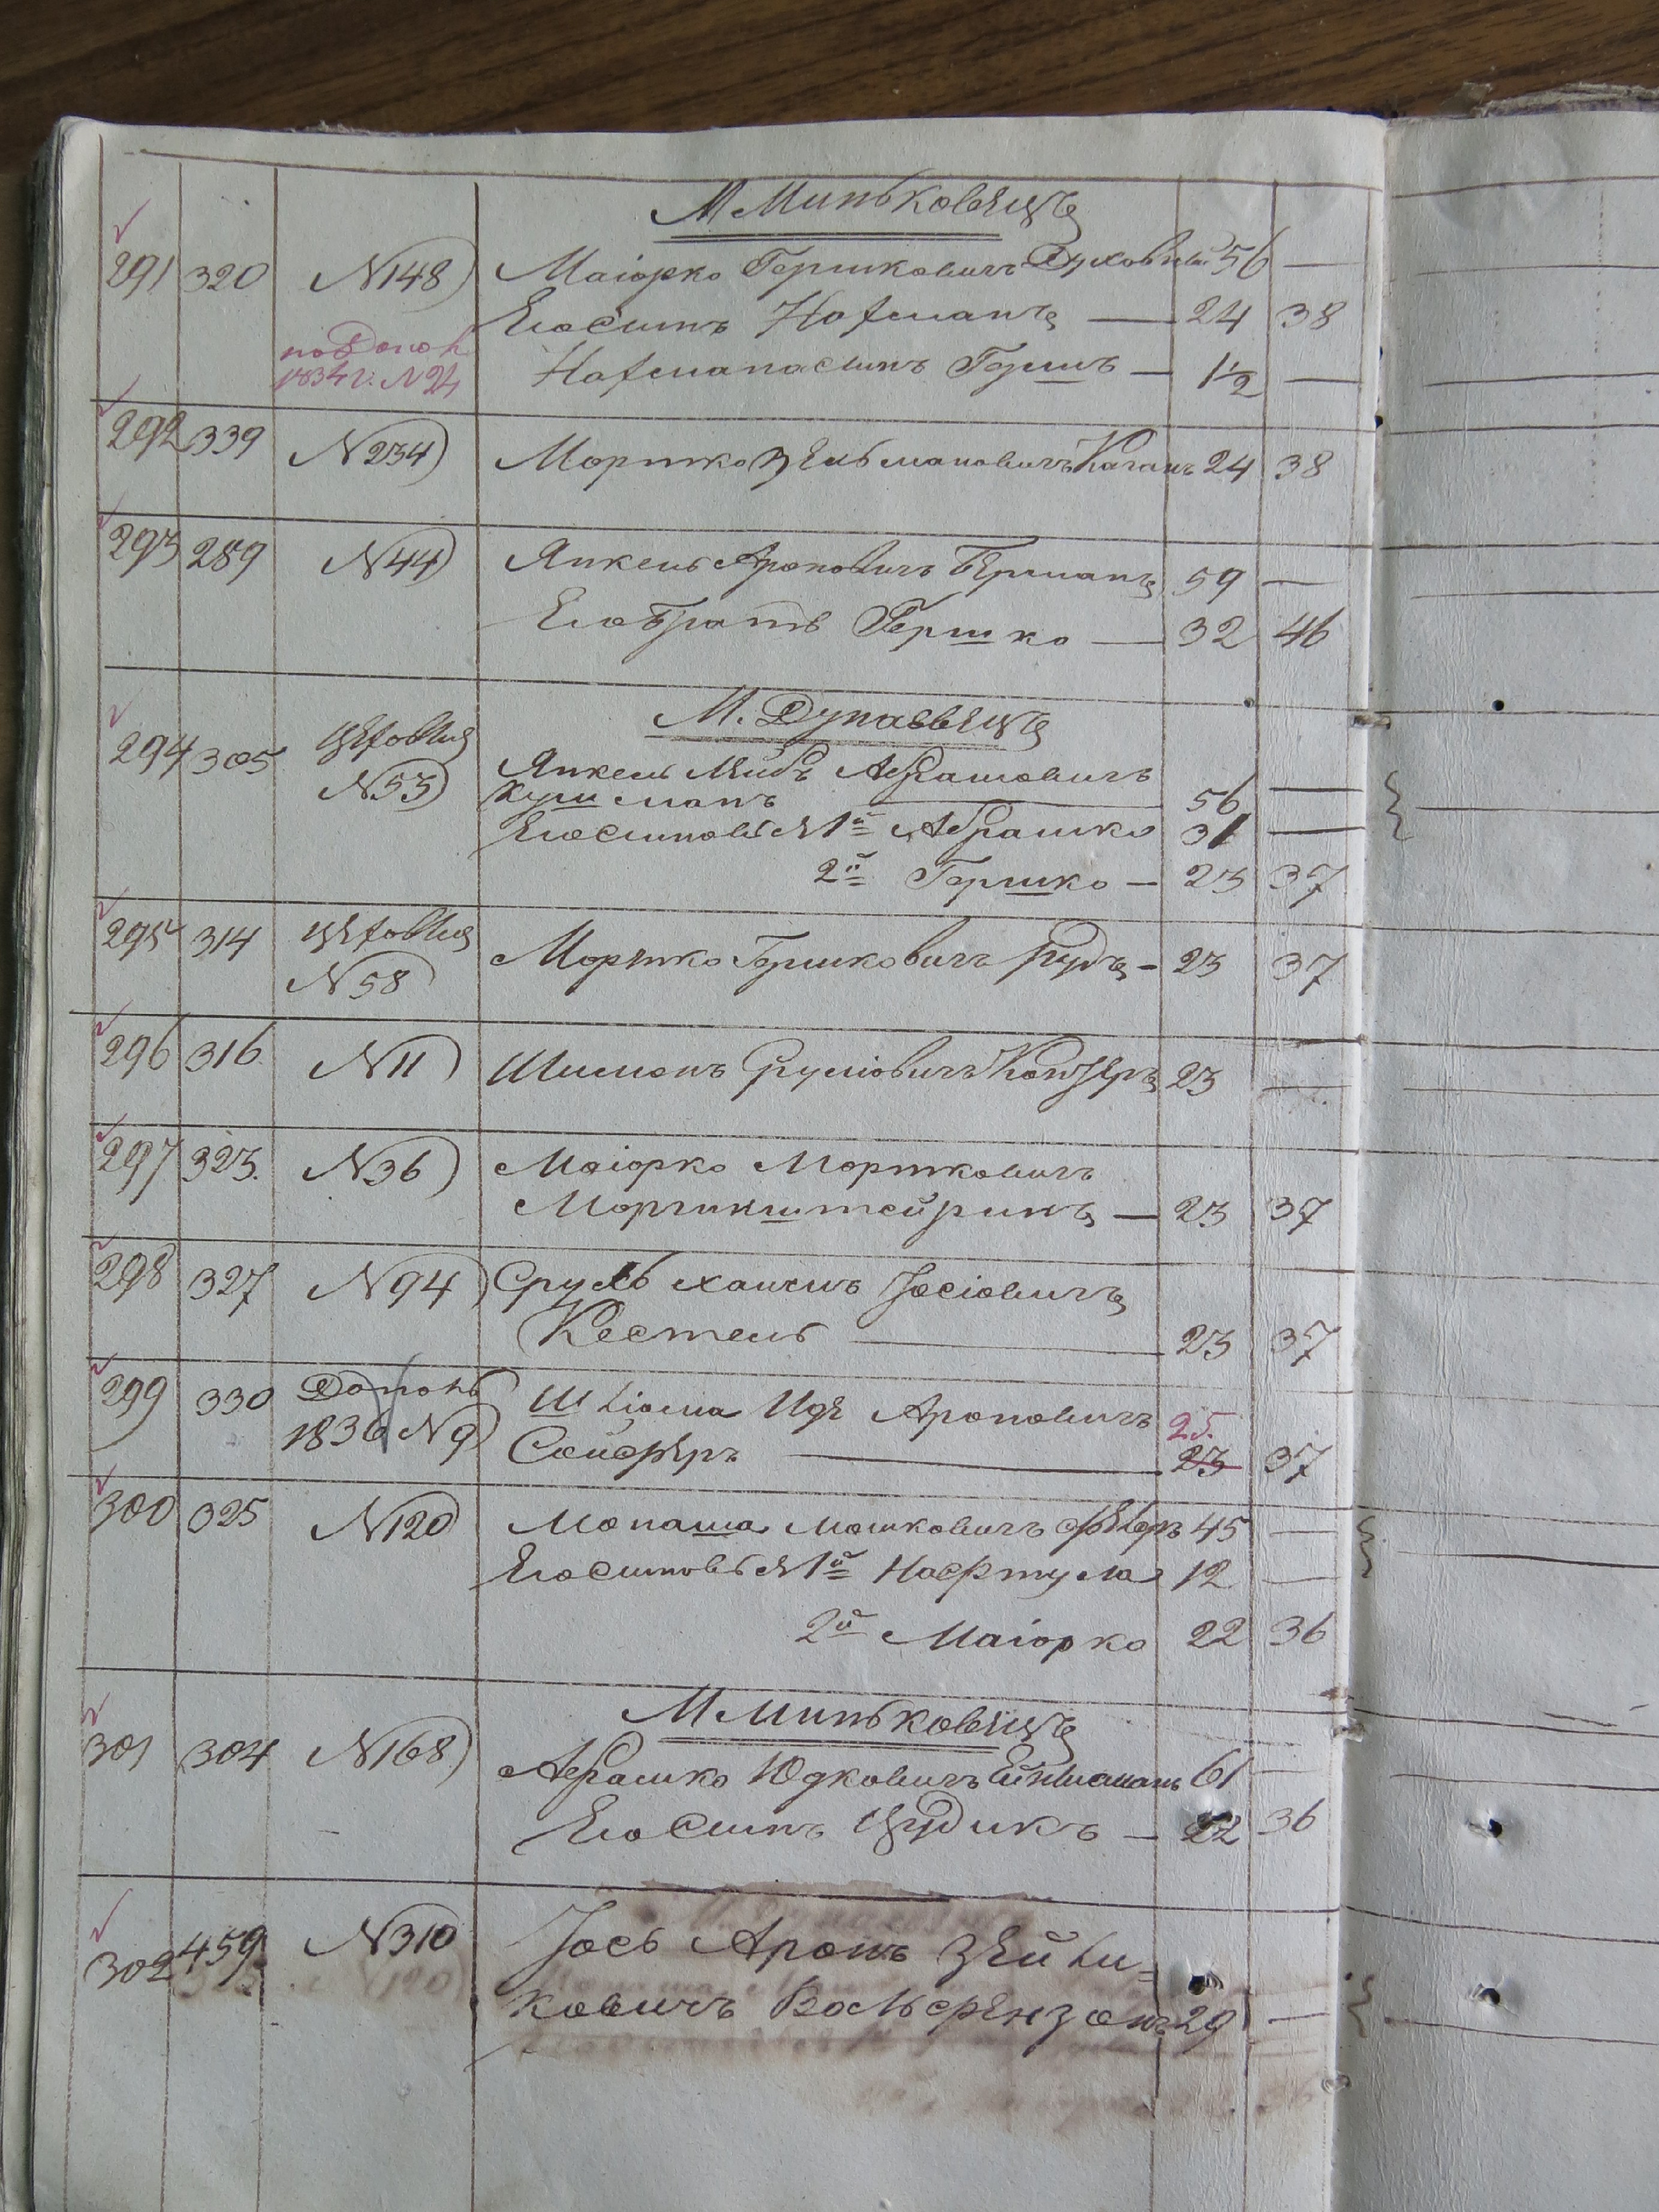 М Миньковецъ
291 320 N148) Маіорко Гершковичъ Духовный 56 —
Его Сынъ Нахманъ — 24 38
по Допол 1834 г. N 24 Нахмана сынъ Гершъ — 1½ —
292 339 N234) Мортко Зельмановичъ Каганъ 24 38
293 289 N44) Янкель Ароновичъ Берманъ 59 —
Его братъ Гершко — 32 46
М. Дунаевецъ
294 305 цеховыя N53) Янкель Лейбъ Абрамовичъ
Кушманъ — 56 —
Его Сыновья 1й Абрашко 31 —
2й Гершко — 23 37
295 314 цеховыя N58 Мортко Гершковичъ Рудъ — 23 37
296 316 N11) Шимонъ Сруліовичъ 23 —
297 323. N36) Маіорко Мортковичъ
— 23 37
298 327 N94) Сруль Хаимъ Іосіовичъ
Кестель — 23 37
299 330 Допол 1836 N9) Шліома Иде Ароновичъ 25.
Сойферъ — 23 37
300 325 N120 Монаша Мошковичъ Феберъ 45 —
Его Сыновья 1й Нафтула 12 —
2й Маіорко 22 36
М Миньковецъ
301 304 N168) Абрашко Юдковичъ 61 —
Его Сынъ Цудикъ — 22 36
302 459 N310 Іось Аронъ Зейли=
ковичъ Вольфензонъ 29 —